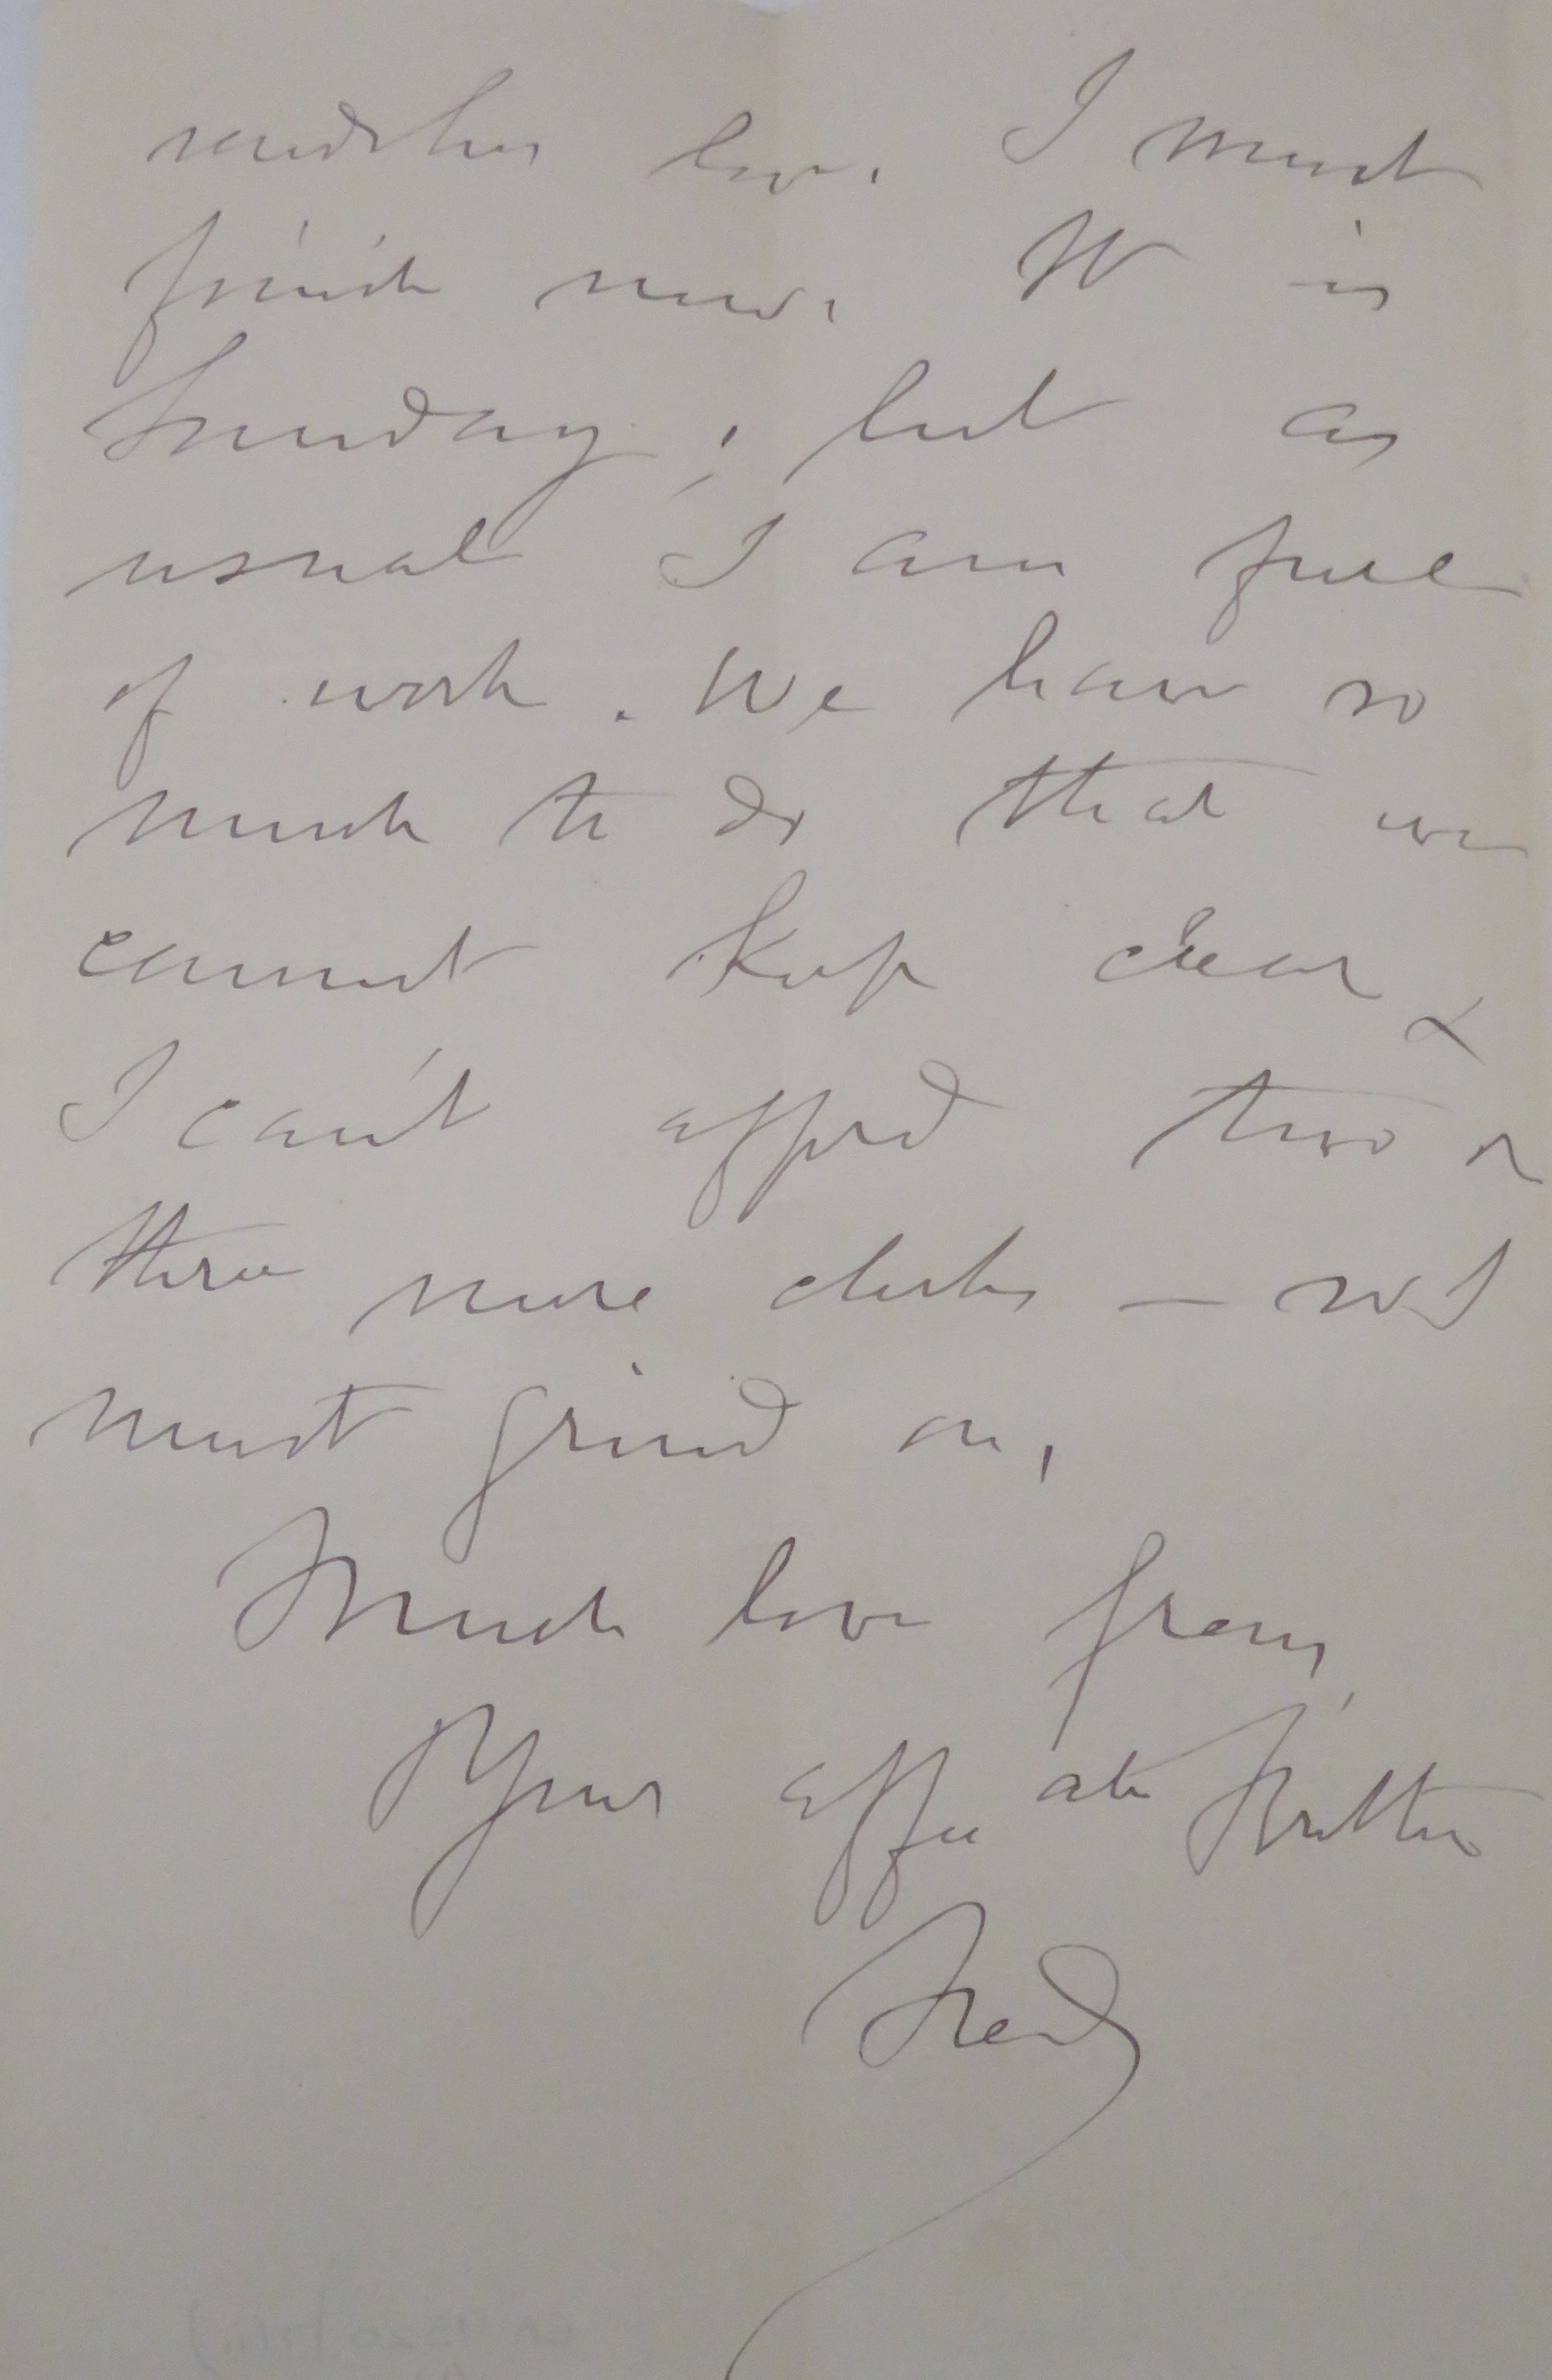 sends her love. I must
finish now. It is
Sunday; but as
usual I am full
of work. We have so
much to do that we
cannot keep clear &
I can't afford two or
three more clerks — so I
must grind on,
Much love from,
Your affec ate Brother
Fred